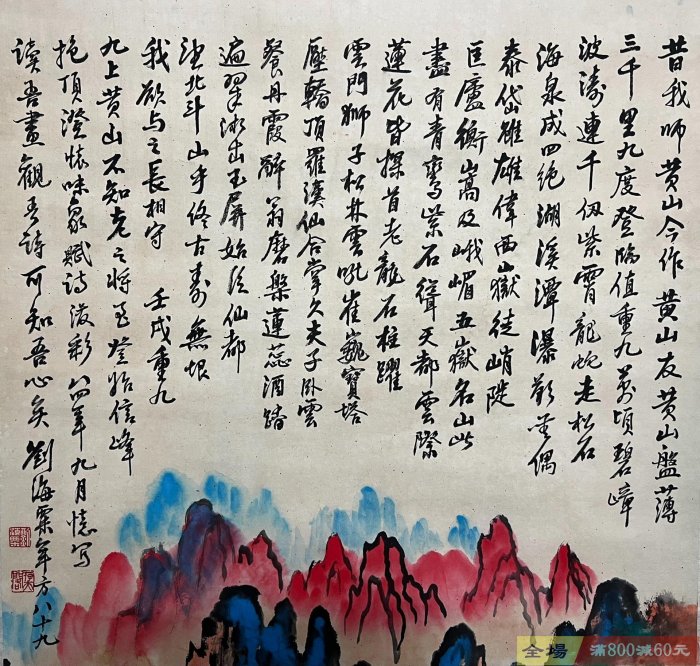 昔我师黄山今作黄山友黄山盤薄
三千里九度登临值重九万頃碧嶂
波涛連千仭紫霄龍蛇走松石
海泉成四绝湖溪潭瀑歎無偶
泰岱雖雄偉西嶽徒峭陡
匡廬衡嵩及峨嵋五嶽名山此
盡有青鸾紫石聳天都雲際
蓮花皆探首老龍石柱躍
雲門獅子松林雲吼崔巍寶塔
壓轎頂羅漢仙合掌久夫子卧雲
餐丹霞醉翁磨槃蓮蕊酒踏
遍翠微出玉屏始信仙都
北斗山乎终古寿無恨
我欲与之長相守 壬戌重九
九上黄山不知老之将至登始信峰
抱頂澄懷味象賦诗潑彩八四年九月憶写
讀吾畫觀吾詩可知吾心矣 劉海粟年方八十九
全場 滿800減60元